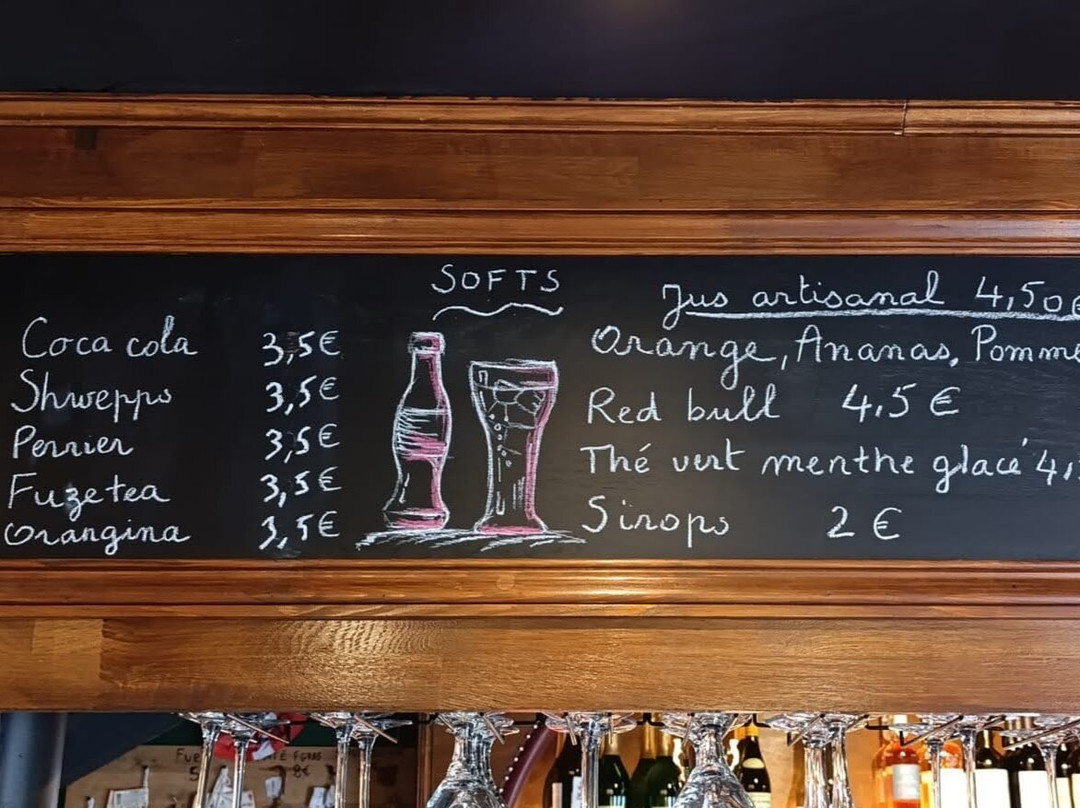 SOFTS
Coca cola 3,5€
Shwepps 3,5€
Perrier 3,5€
Fuzetea 3,5€
Orangina 3,5€
Jus artisanal 4,50€
Orange, Ananas, Pomme
Red bull 4,5€
Thé vert menthe glacé 4,
Sirops 2€